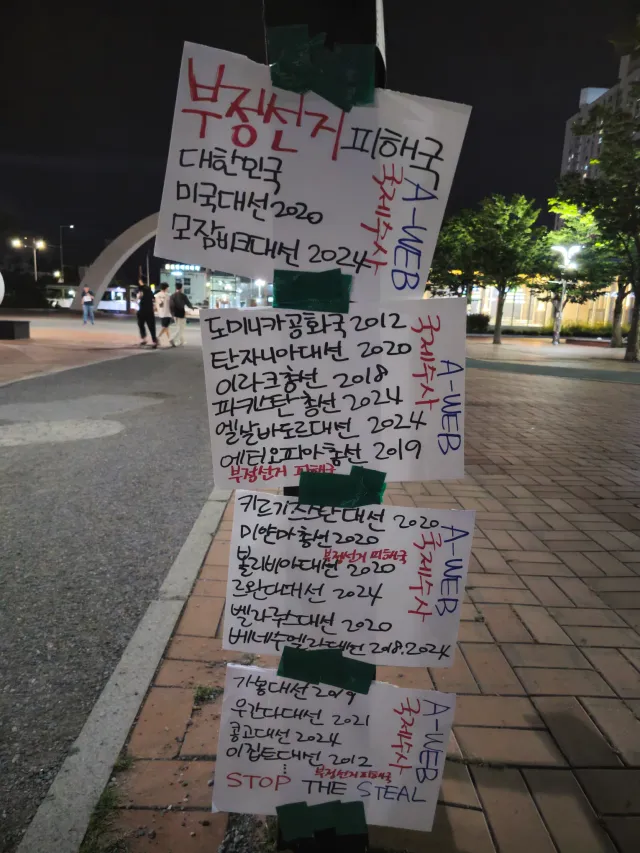 부정선거 피해국
대한민국
미국대선 2020
모잠비크대선 2024
국제수사
A-WEB
도미니카공화국 2012
탄자니아대선 2020
이라크총선 2018
파키스탄 총선 2024
엘살바도르대선 2024
에티오피아총선 2019
부정선거 피해국
국제수사
A-WEB
키르기스스탄대선 2020
미얀마총선 2020
부정선거 피해국
볼리비아대선 2020
르완다대선 2024
벨라루스대선 2020
베네수엘라대선 2018.2024
국제수사
A-WEB
가봉대선 2019
우간다대선 2021
콩고대선 2024
이집트대선 2012
부정선거 피해국
STOP THE STEAL
국제수사
A-WEB